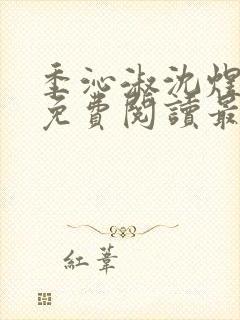 季沁淑沈煜
免費閱讀最
紅葦